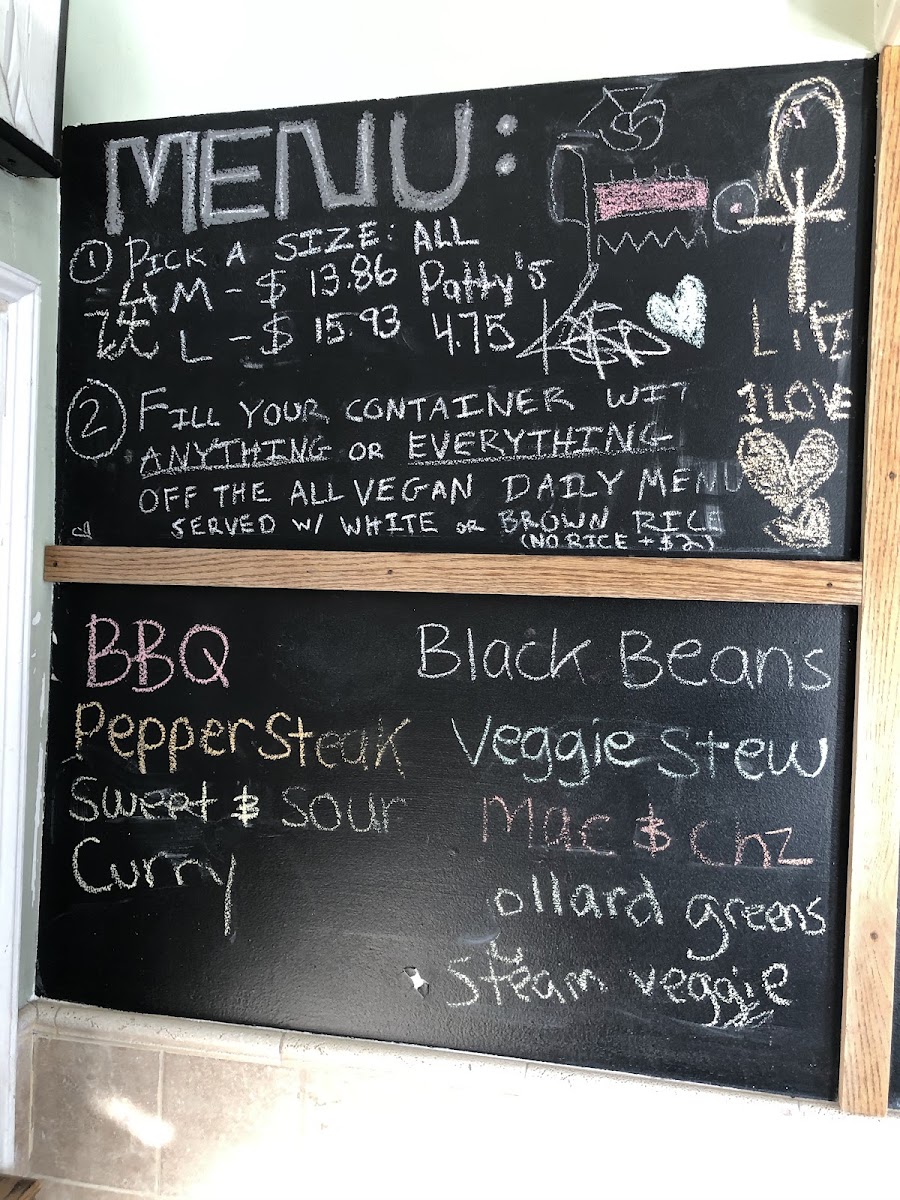 MENU:
1 PICK A SIZE: ALL
M - $ 13.86 Patty's
L - $ 15.93 4.75
2 FILL YOUR CONTAINER WIT
ANYTHING OR EVERYTHING
OFF THE ALL VEGAN DAILY MENU
SERVED W/ WHITE OR BROWN RICE
(NO RICE + $2)
LIFE
1 LOVE
BBQ
Pepper Steak
Sweet & Sour
Curry
Black Beans
Veggie Stew
Mac & Chz
ollard greens
Steam veggie